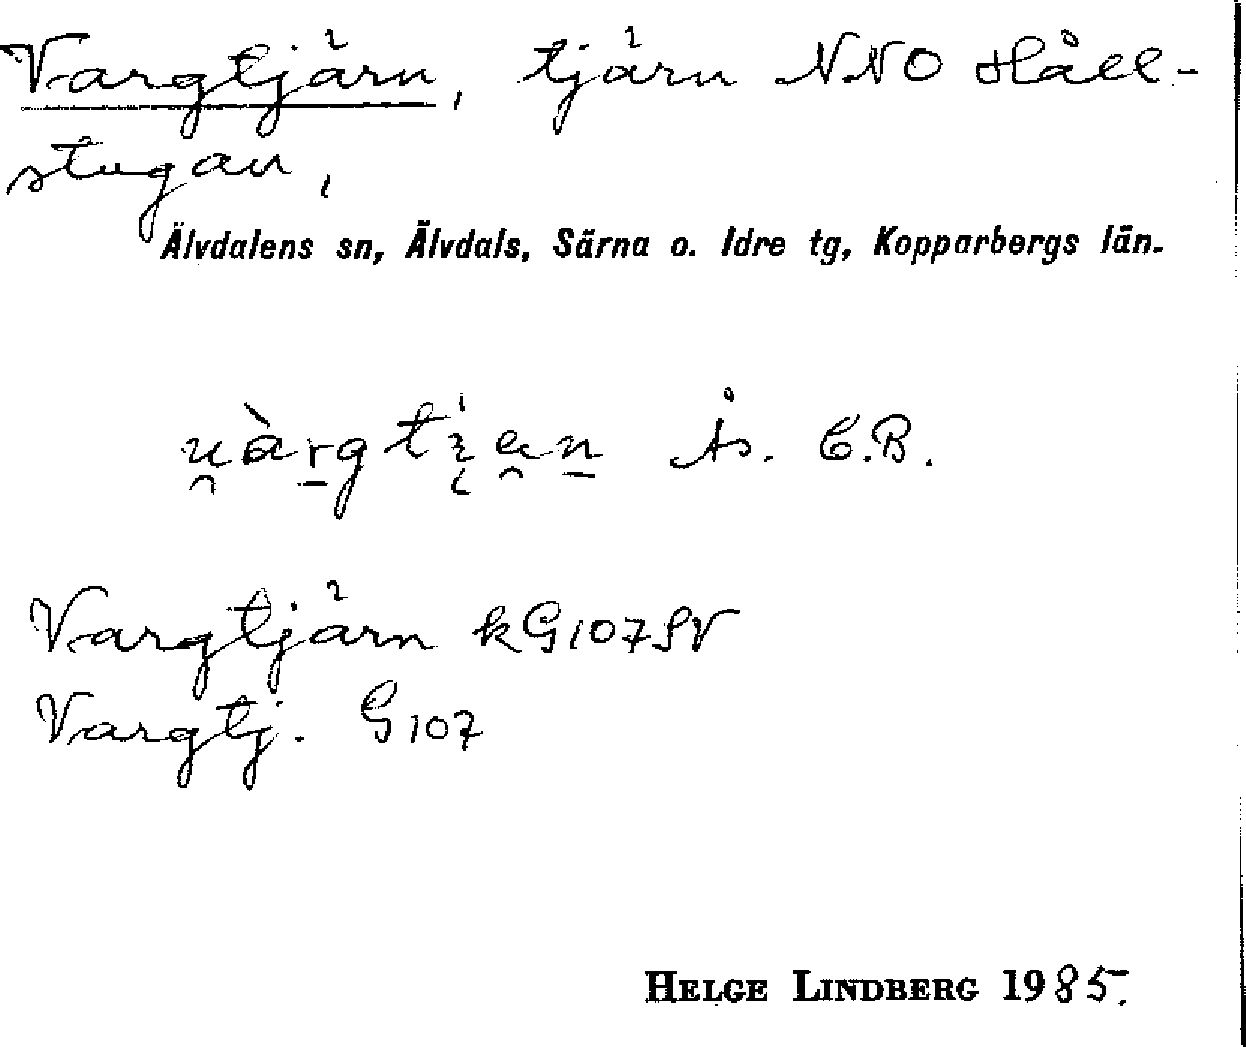 Vargtjärn, tjärn NNO Håll-
stugan,
Älvdalens sn, Älvdals, Särna o. Idre tg, Kopparbergs län.
Ås. E.B.
Vargtjärn kG107SV
Vargtj. G107
HELGE LINDBERG 1985.